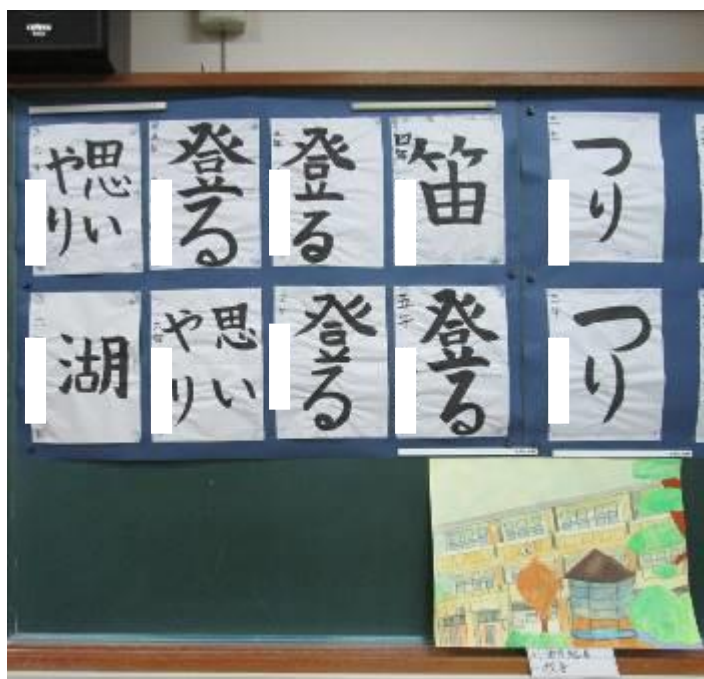 思い
やり
登る
登る
四年
笛
つり
湖
思い
やり
登る
五年
登る
つり